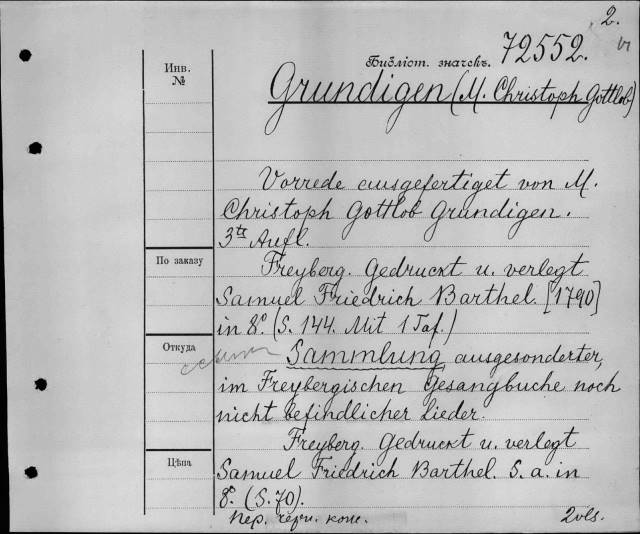 2.
VI
Библіот. значекъ. 72552.
Инв.
№
Grundigen (M. Christoph Gottlob)
Vorrede ausgefertiget von M.
Christoph Gottlob Grundigen.
3te Aufl.
По заказу
Freyberg. Gedruckt u. verlegt
Samuel Friedrich Barthel. [1790]
in 8º. (S. 144. Mit 1 Taf.)
Откуда
Sammlung, ausgesonderter,
im Freybergischen Gesangbuche noch
nicht befindlicher Lieder.
Freyberg. Gedruckt u. verlegt
Цѣна
Samuel Friedrich Barthel. S. a. in
8º. (S. 70).
Пер. черн. кож.
2 vls.